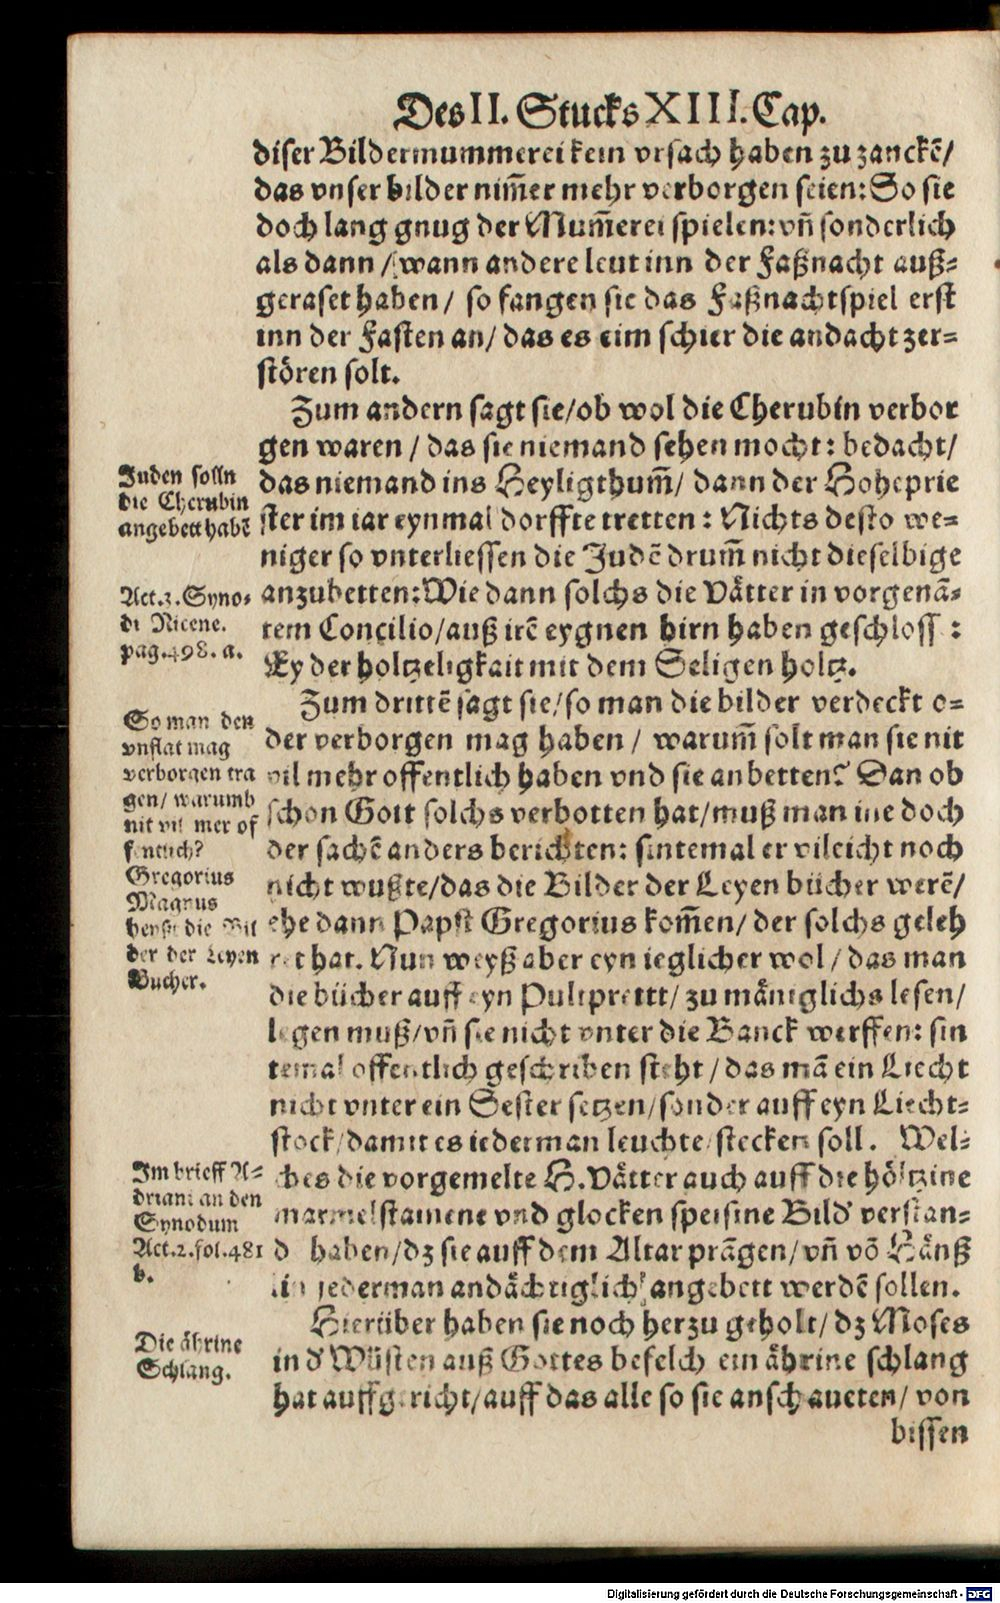 Des II. Stucks XIII. Cap.
diser Bildermummerei kein vrsach haben zu zanckē/
das vnser bilder nim̃er mehr verborgen seien: So sie
doch lang gnug der Mum̃erei spielen: vñ sonderlich
als dann / wann andere leut inn der Faßnacht auß-
geraset haben / so fangen sie das Faßnachtspiel erst
inn der Fasten an / das es eim schier die andacht zer-
stören solt.
Zum andern sagt sie / ob wol die Cherubin verbor
gen waren / das sie niemand sehen mocht: bedacht /
das niemand ins Heyligthum̃ / dann der Hoheprie
ster im iar eynmal dorffte tretten: Nichts desto we-
niger so vnterliessen die Judē drum̃ nicht dieselbige
anzubetten: Wie dann solchs die Vätter in vorgenā-
tem Concilio / auß irē eygnen hirn haben geschloss :
Ey der holtzeligkait mit dem Seligen holtz.
Zum drittē sagt sie / so man die bilder verdeckt o-
der verborgen mag haben / warum̃ solt man sie nit
vil mehr offentlich haben vnd sie anbetten? Dan ob
schon Gott solchs verbotten hat / muß man ine doch
der sachē anders berichten: sintemal er vileicht noch
nicht wußte / das die Bilder der Leyen bücher werē /
ehe dann Papst Gregorius kom̃en / der solchs geleh
ret hat. Nun weyß aber eyn ieglicher wol / das man
die bücher auff eyn Pultprettt / zu mäniglichs lesen /
legen muß / vñ sie nicht vnter die Banck werffen: sin
temal offentlich geschriben steht / das mā ein Liecht
nicht vnter ein Sester setzen / sonder auff eyn Liecht-
stock / damit es iederman leuchte / stecken soll. Wel-
ches die vorgemelte H. Vätter auch auff die höltzine
marmelstainene vnd glocken speisine Bild' verstan-
d haben / dz sie auff dem Altar prāgen / vñ vō Hänß
jederman andächtiglich angebett werdē sollen.
Hierüber haben sie noch herzu geholt / dz Moses
in d' Wüsten auß Gottes befelch ein ährine schlang
hat auffgericht / auff das alle so sie anschaueten / von
bissen
Juden solln
die Cherubin
angebett habē
Act.3. Syno-
di Nicene.
pag.498. a.
So man den
vnflat mag
verborgen tra
gen / warumb
nit vil mer of
fentlich?
Gregorius
Magnus
heyst die Bil
der der Leyen
Bucher.
Im brieff A-
driani an den
Synodum
Act.2. fol.481
b.
Die ährine
Schlang.
Digitalisierung gefördert durch die Deutsche Forschungsgemeinschaft - DFG